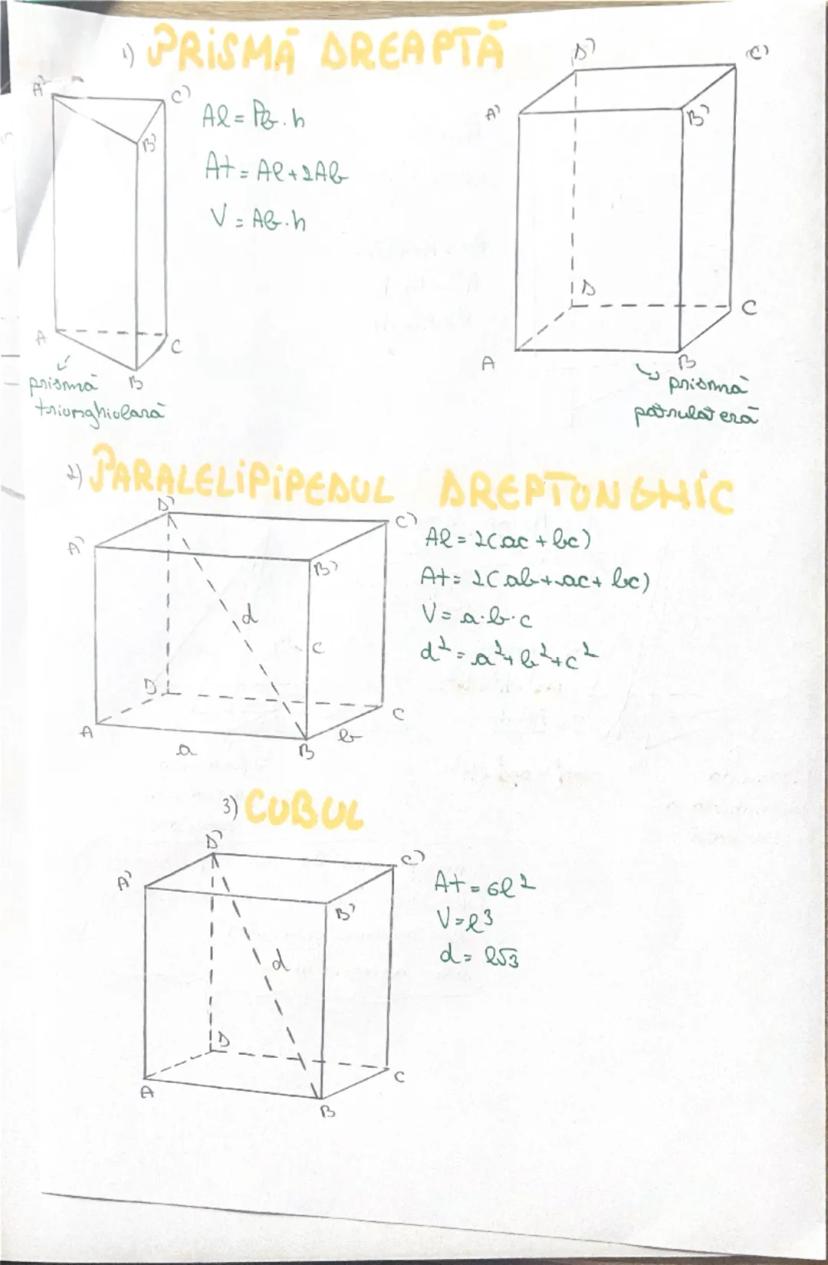 1) PRISMĂ DREAPTĂ
A' C' B'
Al = Pb · h
At = Al + 2Ab
V = Ab · h
A B C
prismă
triunghiulară
D' C' A' B'
D C A B
prismă
patrulateră
2) PARALELIPIPEDUL DREPTUNGHIC
D' C' A' B'
d c
D C A B
a b
Al = 2(ac + bc)
At = 2(ab + ac + bc)
V = a · b · c
d² = a² + b² + c²
3) CUBUL
D' C' A' B'
d
D C A B
At = 6l²
V = l³
d = l√3